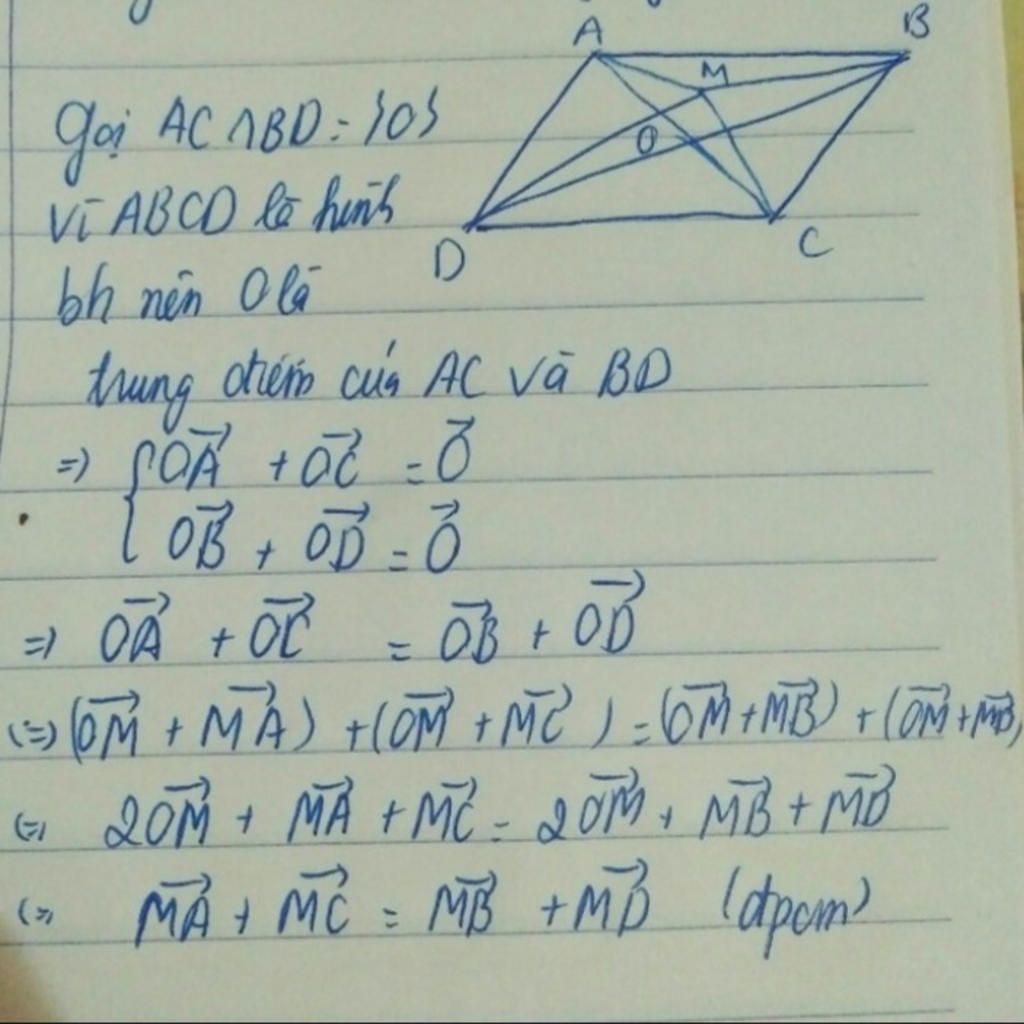 A
B
M
O
D
C
Gọi AC ∩ BD = {O}
Vì ABCD là hình
bh nên O là
trung điểm của AC và BD
=> { \overrightarrow{OA} + \overrightarrow{OC} = \overrightarrow{O}
\overrightarrow{OB} + \overrightarrow{OD} = \overrightarrow{O}
=> \overrightarrow{OA} + \overrightarrow{OC} = \overrightarrow{OB} + \overrightarrow{OD}
(=>) (\overrightarrow{OM} + \overrightarrow{MA}) + (\overrightarrow{OM} + \overrightarrow{MC}) = (\overrightarrow{OM} + \overrightarrow{MB}) + (\overrightarrow{OM} + \overrightarrow{MB}
(=) 2\overrightarrow{OM} + \overrightarrow{MA} + \overrightarrow{MC} = 2\overrightarrow{OM} + \overrightarrow{MB} + \overrightarrow{MD}
(=) \overrightarrow{MA} + \overrightarrow{MC} = \overrightarrow{MB} + \overrightarrow{MD} (đpcm)